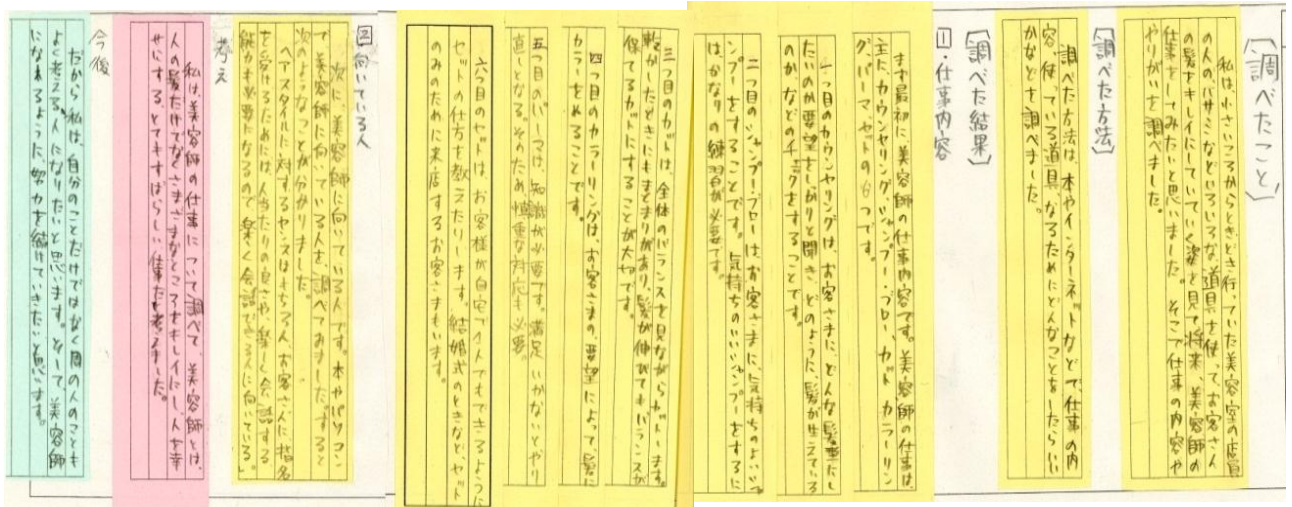 〔調べたこと〕
私は、小さいころからときどき行っていた美容室の店員
の人のハサミなどいろいろな道具を使ってお客さん
の髪をキレイにしていていく姿を見て将来、美容師の
仕事をしてみたいと思いました。そこで仕事の内容や
やりがいを調べました。
〔調べた方法〕
調べた方法は、本やインターネットなどで仕事の内
容、使っている道具、なるためにどんなことをしたらいい
かなどを調べました。
〔調べた結果〕
1・仕事内容
まず最初に美容師の仕事内容です。美容師の仕事は、
主に、カウンセリング、シャンプー・ブロー、カット、カラーリン
グ、パーマ、セットの6つです。
一つ目のカウンセリングは、お客さまに、どんな髪型にし
たいのか要望をしっかりと聞き、どのように、髪が生えている
のか、などのチェックをすることです。
二つ目のシャンプー・ブローは、お客さまに、気持ちのよいシャ
ンプーをすることです。気持ちのいいシャンプーをするに
は、かなりの練習が必要です。
三つ目のカットは、全体のバランスを見ながらカットします。
乾かしたときにもまとまりがあり、髪が伸びてもバランスが
保てるカットにすることが大切です。
四つ目のカラーリングは、お客さまの、要望によって、髪に
カラーをそめることです。
五つ目のパーマは、知識が必要です。満足いかないとやり
直しとなる。そのため慎重な対応も必要。
六つ目のセットは、お客様が自宅で1人でもできるように
セットの仕方を教えたりします。結婚式のときなど、セット
のみのために来店するお客さまもいます。
2向いている人
次に、美容師に向いている人です。本やパソコン
で美容師に向いている人を、調べてみました。すると
次のようなことが分かりました。
ヘアスタイルに対するセンスはもちろん、お客さんに指名
を受けるためには人当たりの良さや、楽しく会話する
能力も必要になるので楽しく会話できる人に向いている。
考え
私は、美容師の仕事について調べて、美容師とは、
人の髪だけでなくさまざまなところをキレイにし、人を幸
せにする、とてもすばらしい仕事だと考えました。
今後
だから私は、自分のことだけではなく周の人のことも
よく考える人になりたいと思います。そして、美容師
になれるように、努力を続けていきたいと思います。